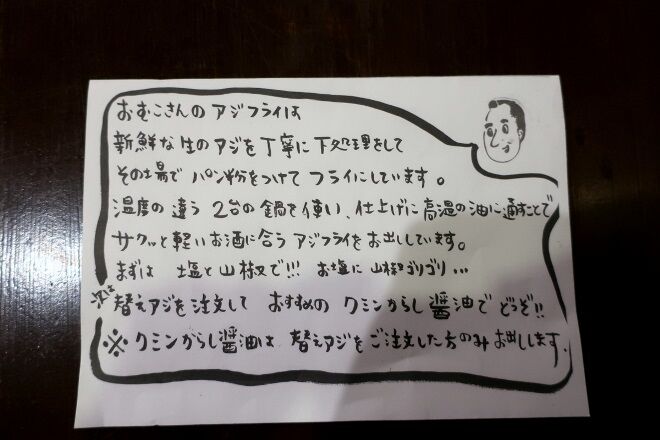 おむこさんの アジフライは
新鮮な生のアジを丁寧に下処理をして
その場で パン粉をつけて フライにしています。
温度の違う 2台の鍋を使い、仕上げに高温の油に通すことで
サクッと軽いお酒に合う アジフライをお出ししています。
まずは 塩と山椒で!!! お塩に山椒ゴリゴリ...
次は 替えアジを注文して おすすめの クミンからし醤油で どうぞ!!
※ クミンからし醤油は 替えアジをご注文した方のみお出しします.